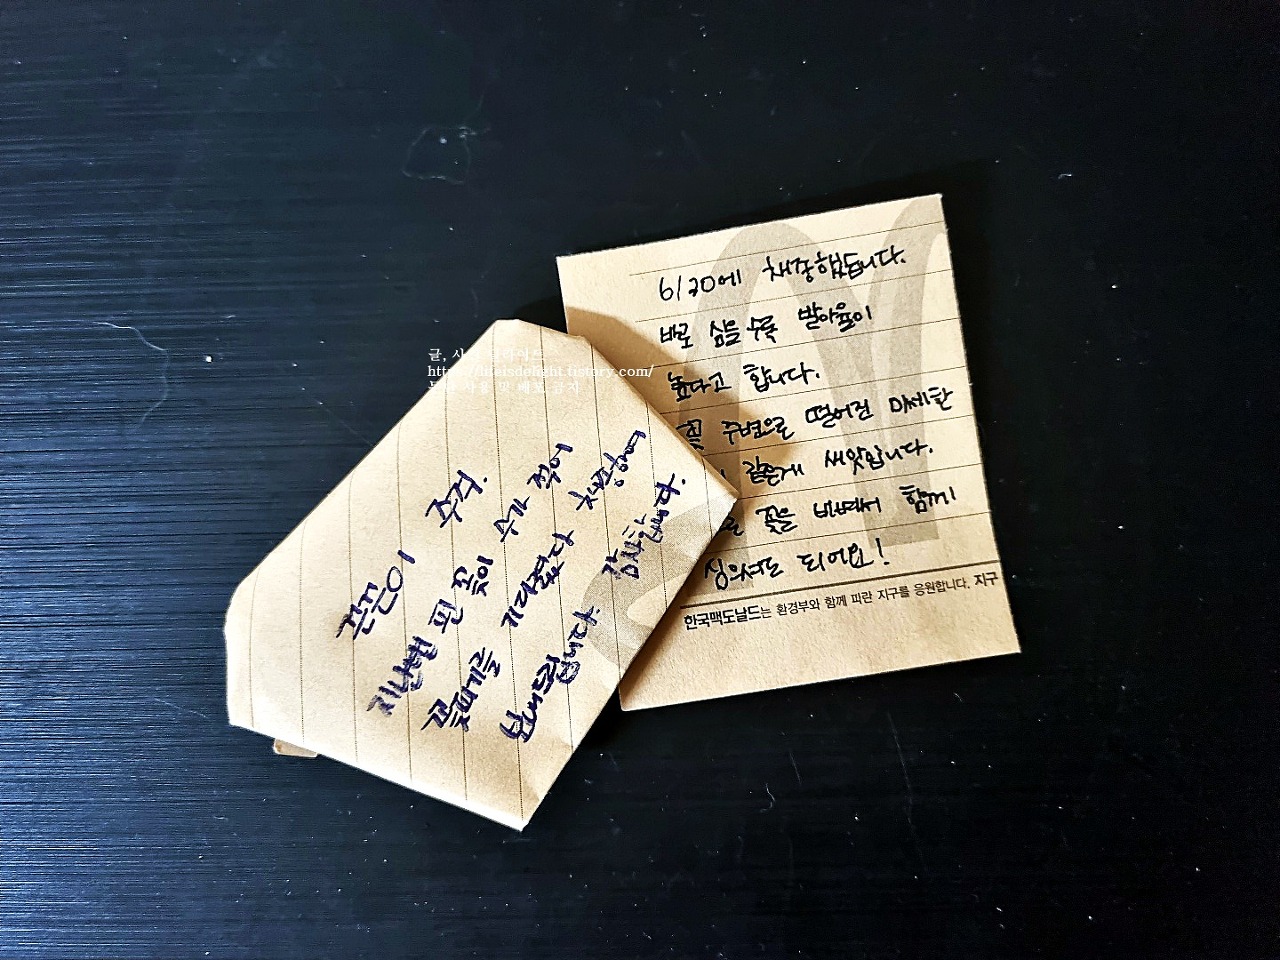 끈끈이 주걱.
지난번 핀 꽃이 수가 적어
꽃피기를 기다렸다 채종하여
보내드립니다. 감사합니다.
6/20에 채종했습니다.
바로 심을수록 발아율이
높다고 합니다.
꽃 주변으로 떨어진 미세한
같은게 새앗입니다.
꽃을 비벼서 함께
심으셔도 되어요!
한국맥도날드는 환경부와 함께 파란 지구를 응원합니다. 지구
글, 사
https://lifeisdelight.tistory.com/
사용 및 배포 금지